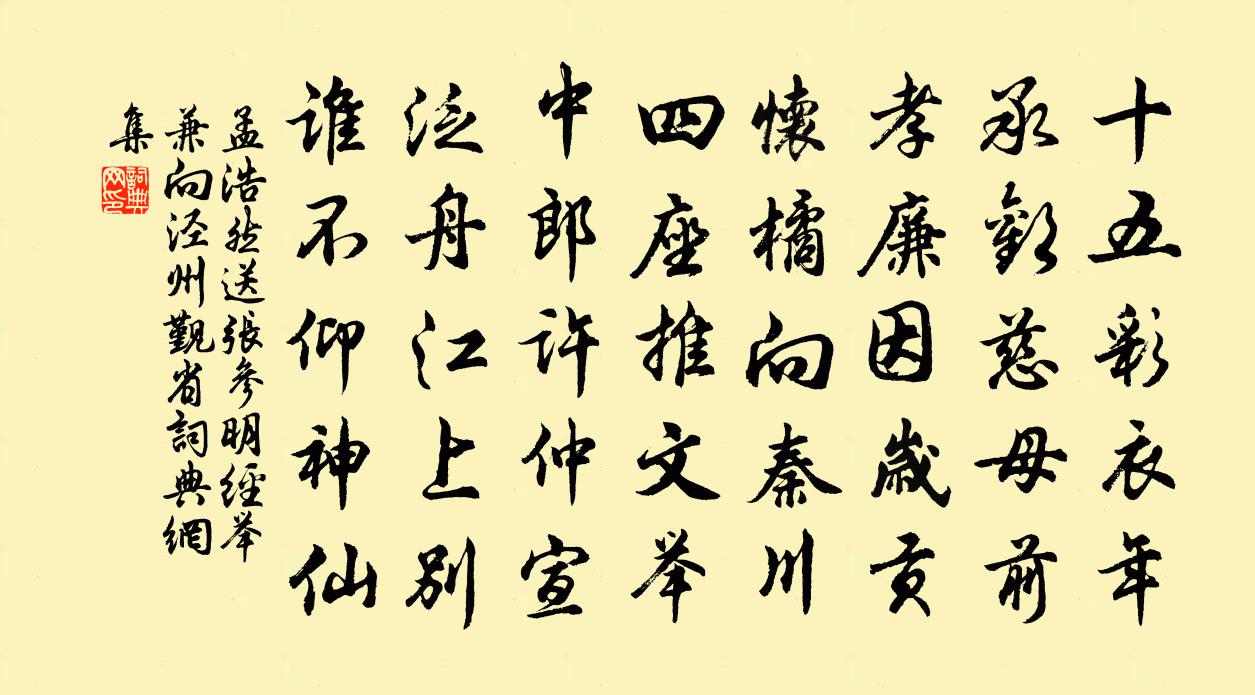 十五彩衣年
承歡慈母前
孝廉因歲貢
懷橘向秦川
四座推文举
中郎許仲宣
泛舟江上別
誰不仰神仙
孟浩然送張參明經举
兼向涇州觀省詞典網
集
詞典
网印